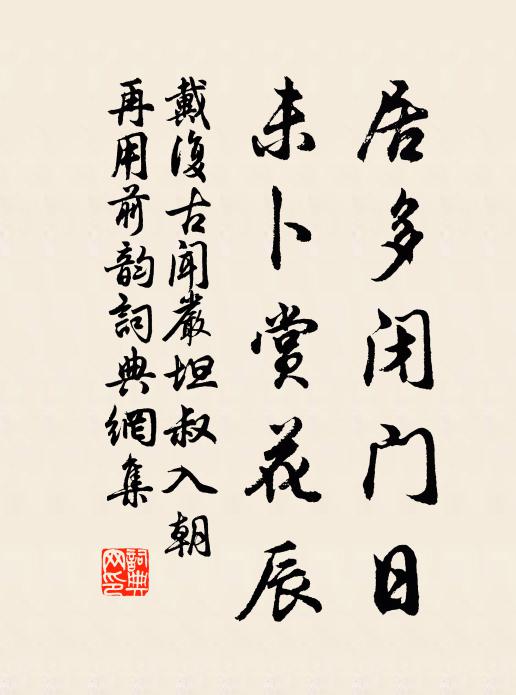 居多闭门日
未卜赏花辰
戴復古闻嚴坦叔入朝
再用前韵詞典網集
詞典网印